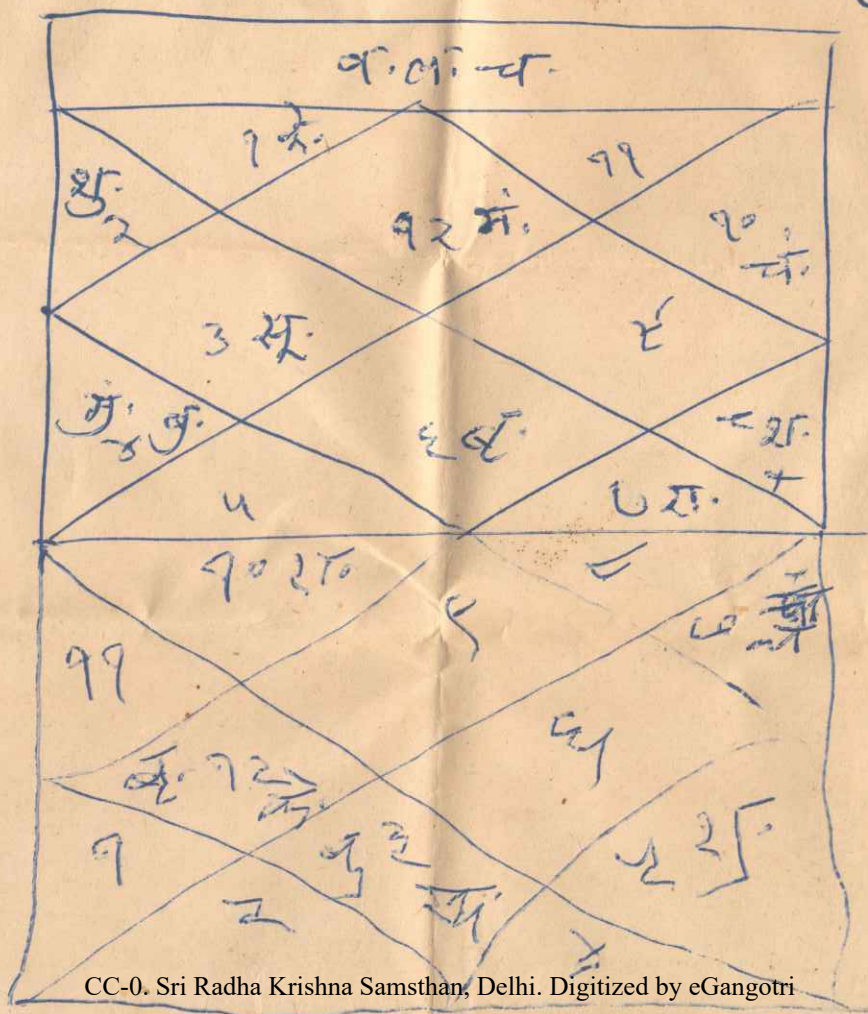 व. ल. च.
१ के.
११
शु.
२
१२ मं.
१०
चं.
३ सू.
९
मुं. बु.
४
६ बृ.
८ श.
५
७ रा.
१० रा.
८
९
११
७
६
बृ. १२
१
बु ३
५ शु.
२
४
CC-0. Sri Radha Krishna Samsthan, Delhi. Digitized by eGangotri